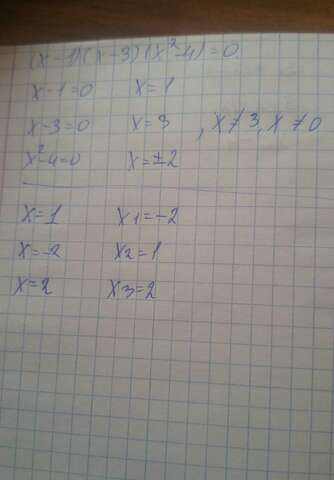 (x-1)(x-3)(x²-4)=0.
x-1=0 x=1
x-3=0 x=3 , x≠3, x≠0
x²-4=0 x=±2
x=1 x1=-2
x=-2 x2=1
x=2 x3=2